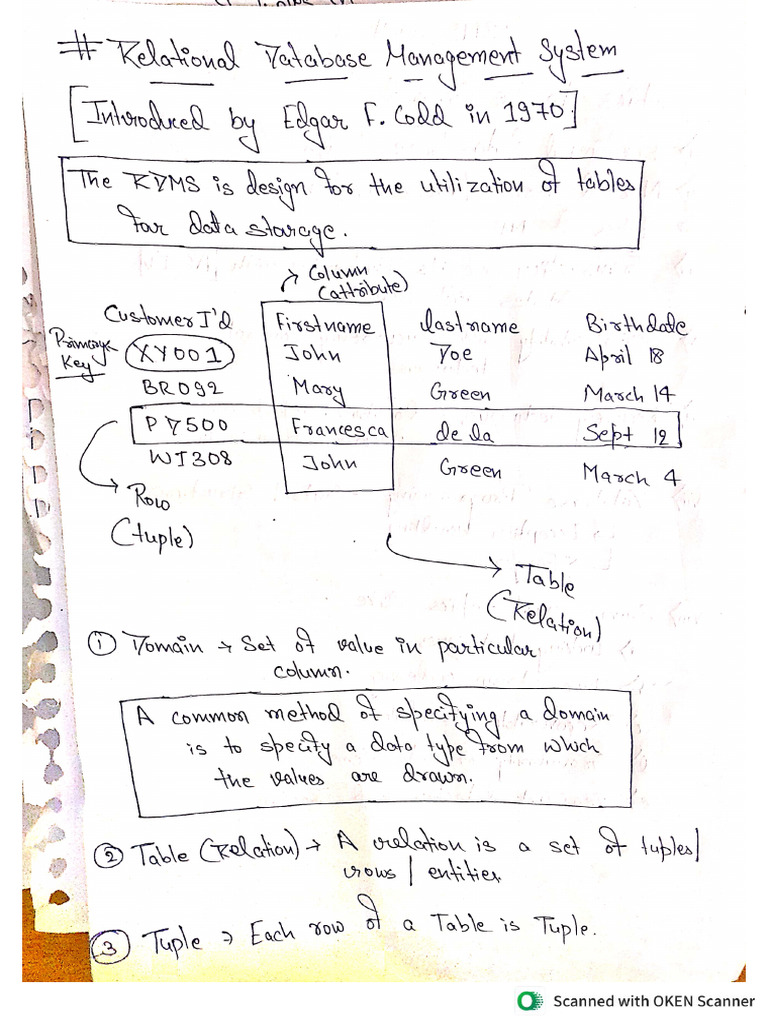 # Relational Database Management System
[Introduced by Edgar F. Codd in 1970]
The RDMS is design for the utilization of tables
for data storage.
Column
(attribute)
Customer I'd Firstname lastname Birthdate
Primary Key XY001 John Doe April 18
BR092 Mary Green March 14
PD500 Francesca de la Sept 12
WI308 John Green March 4
Row
(tuple)
Table
(Relation)
① Domain → Set of value in particular
column.
A common method of specifying a domain
is to specify a data type from which
the values are drawn.
② Table (Relation) → A relation is a set of tuples/
rows / entities
③ Tuple → Each row of a Table is Tuple.
Scanned with OKEN Scanner